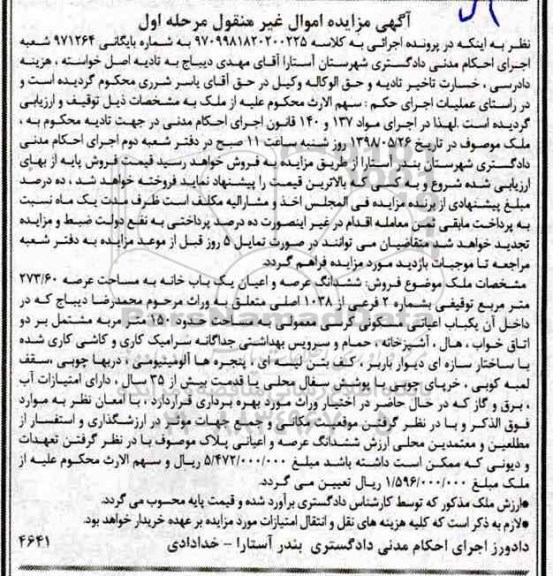 آگهی مزایده اموال غیر منقول مرحله اول
نظر به اینکه در پرونده اجرائی به کلاسه ۹۷۰۹۹۸۱۸۲۰۲۰۰۲۲۵ به شماره بایگانی ۹۷۱۲۶۴ شعبه
اجرای احکام مدنی دادگستری شهرستان آستارا آقای مهدی دیباج به تادیه اصل خواسته ، هزینه
دادرسی ، خسارت تاخیر تادیه و حق الوکاله وکیل در حق آقای یاسر شرری محکوم گردیده است و
در راستای عملیات اجرای حکم : سهم الارث محکوم علیه از ملک به مشخصات ذیل توقیف و ارزیابی
گردیده است .لهذا در اجرای مواد ۱۳۷ و ۱۴۰ قانون اجرای احکام مدنی در جهت تادیه محکوم به ،
ملک موصوف در تاریخ ۱۳۹۸/۰۵/۲۶ روز شنبه ساعت ۱۱ صبح در دفتر شعبه دوم اجرای احکام مدنی
دادگستری شهرستان بندر آستارا از طریق مزایده به فروش خواهد رسید قیمت فروش پایه از بهای
ارزیابی شده شروع و به کسی که بالاترین قیمت را پیشنهاد نماید فروخته خواهد شد ، ده درصد
مبلغ پیشنهادی از برنده مزایده فی المجلس اخذ و مشارالیه مکلف است ظرف مدت یک ماه نسبت
به پرداخت مابقی ثمن معامله اقدام در غیر اینصورت ده درصد پرداختی به نفع دولت ضبط و مزایده
تجدید خواهد شد متقاضیان می توانند در صورت تمایل ۵ روز قبل از موعد مزایده به دفتر شعبه
مراجعه تا موجبات بازدید مورد مزایده فراهم گردد.
مشخصات ملک موضوع فروش: ششدانگ عرصه و اعیان یک باب خانه به مساحت عرصه ۲۷۳/۶۰
متر مربع توقیفی بشماره ۲ فرعی از ۱۰۳۸ اصلی متعلق به وراث مرحوم محمدرضا دیباج که در
داخل آن یکباب اعیانی مسکونی کرسی معمولی به مساحت حدود ۱۵۰ متر مربه مشتمل بر دو
اتاق خواب ، هال ، آشپزخانه ، حمام و سرویس بهداشتی جداگانه سرامیک کاری و کاشی کاری شده
با ساختار سازه ای دیوار باربر ، کف بتن لیسه ای ، پنجره ها آلومینیومی ، دربها چوبی ،سقف
لمبه کوبی ، خرپای چوبی با پوشش سفال محلی با قدمت بیش از ۳۵ سال ، دارای امتیازات آب
، برق و گاز که در حال حاضر در اختیار وراث مورد بهره برداری قراردارد ، با امعان نظر به موارد
فوق الذکر و با در نظر گرفتن موقعیت مکانی و جمیع جهات موثر در ارزشگذاری و استفسار از
مطلعین و معتمدین محلی ارزش ششدانگ عرصه و اعیانی پلاک موصوف با در نظر گرفتن تعهدات
و دیونی که ممکن است داشته باشد مبلغ ۵/۴۷۲/۰۰۰/۰۰۰ ریال و سهم الارث محکوم علیه از
ملک مبلغ ۱/۵۹۶/۰۰۰/۰۰۰ ریال تعیین می گردد.
●ارزش ملک مذکور که توسط کارشناس دادگستری برآورد شده و قیمت پایه محسوب می گردد.
●لازم به ذکر است که کلیه هزینه های نقل و انتقال امتیازات مورد مزایده بر عهده خریدار خواهد بود.
دادورز اجرای احکام مدنی دادگستری بندر آستارا - خدادادی ۴۶۴۱
ParsNamadData